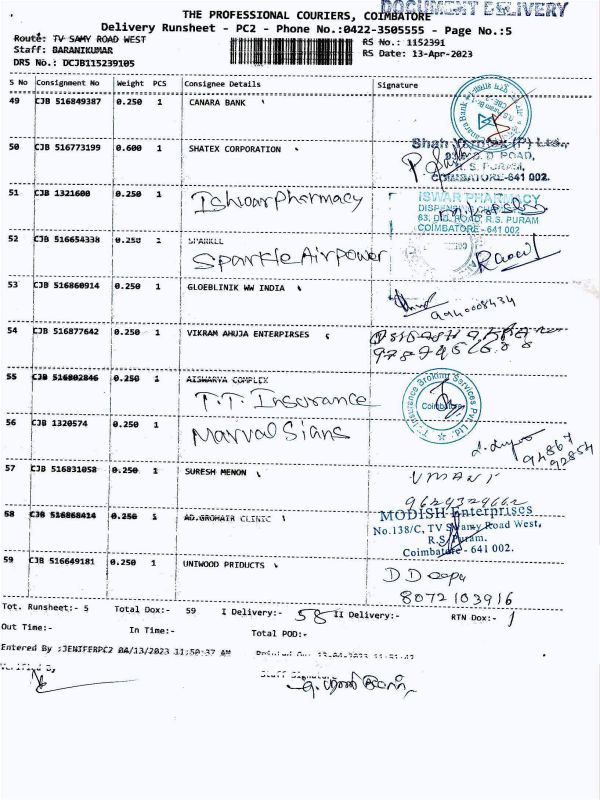 DOCUMENT DELIVERY
THE PROFESSIONAL COURIERS, COIMBATORE
Delivery Runsheet - PC2 - Phone No.:0422-3505555 - Page No.:5
Route: TV SAMY ROAD WEST
RS No.: 1152391
Staff: BARANIKUMAR
RS Date: 13-Apr-2023
DRS No.: DCJB115239105
S No Consignment No Weight PCS Consignee Details Signature
49 CJB 516849387 0.250 1 CANARA BANK
50 CJB 516773199 0.600 1 SHATEX CORPORATION
R.S. PURAM,
COIMBATORE-641 002.
51 CJB 1321600 0.250 1 Ishwar Pharmacy
ISWAR PHARMACY
63, D.B. ROAD, R.S. PURAM
COIMBATORE - 641 002
52 CJB 516654338 0.250 1 SPARKLE
Sparkle Airpower
53 CJB 516860914 0.250 1 GLOEBLINIK WW INDIA
9940008434
54 CJB 516877642 0.250 1 VIKRAM AHUJA ENTERPIRSES
55 CJB 516802846 0.250 1 AISWARYA COMPLEX
T.T. Insurance
T. T. Insurance Broking Services Pvt. Ltd.
Coimbatore
56 CJB 1320574 0.250 1 Marval Sians
94867
92854
57 CJB 516831058 0.250 1 SURESH MENON
UMANT
9629329662
58 CJB 516868414 0.250 1 AD.GROHAIR CLINIC
MODISH Enterprises
No.138/C, TV Swamy Road West,
R.S. Puram.
Coimbatore - 641 002.
59 CJB 516649181 0.250 1 UNIWOOD PRIDUCTS
D Deepa
8072103916
Tot. Runsheet:- 5 Total Dox:- 59 I Delivery:- 58 II Delivery:- RTN Dox:- 1
Out Time:- In Time:- Total POD:-
Entered By :JENIFERPC2 04/13/2023 11:50:37 AM
Verified By
Staff Signature